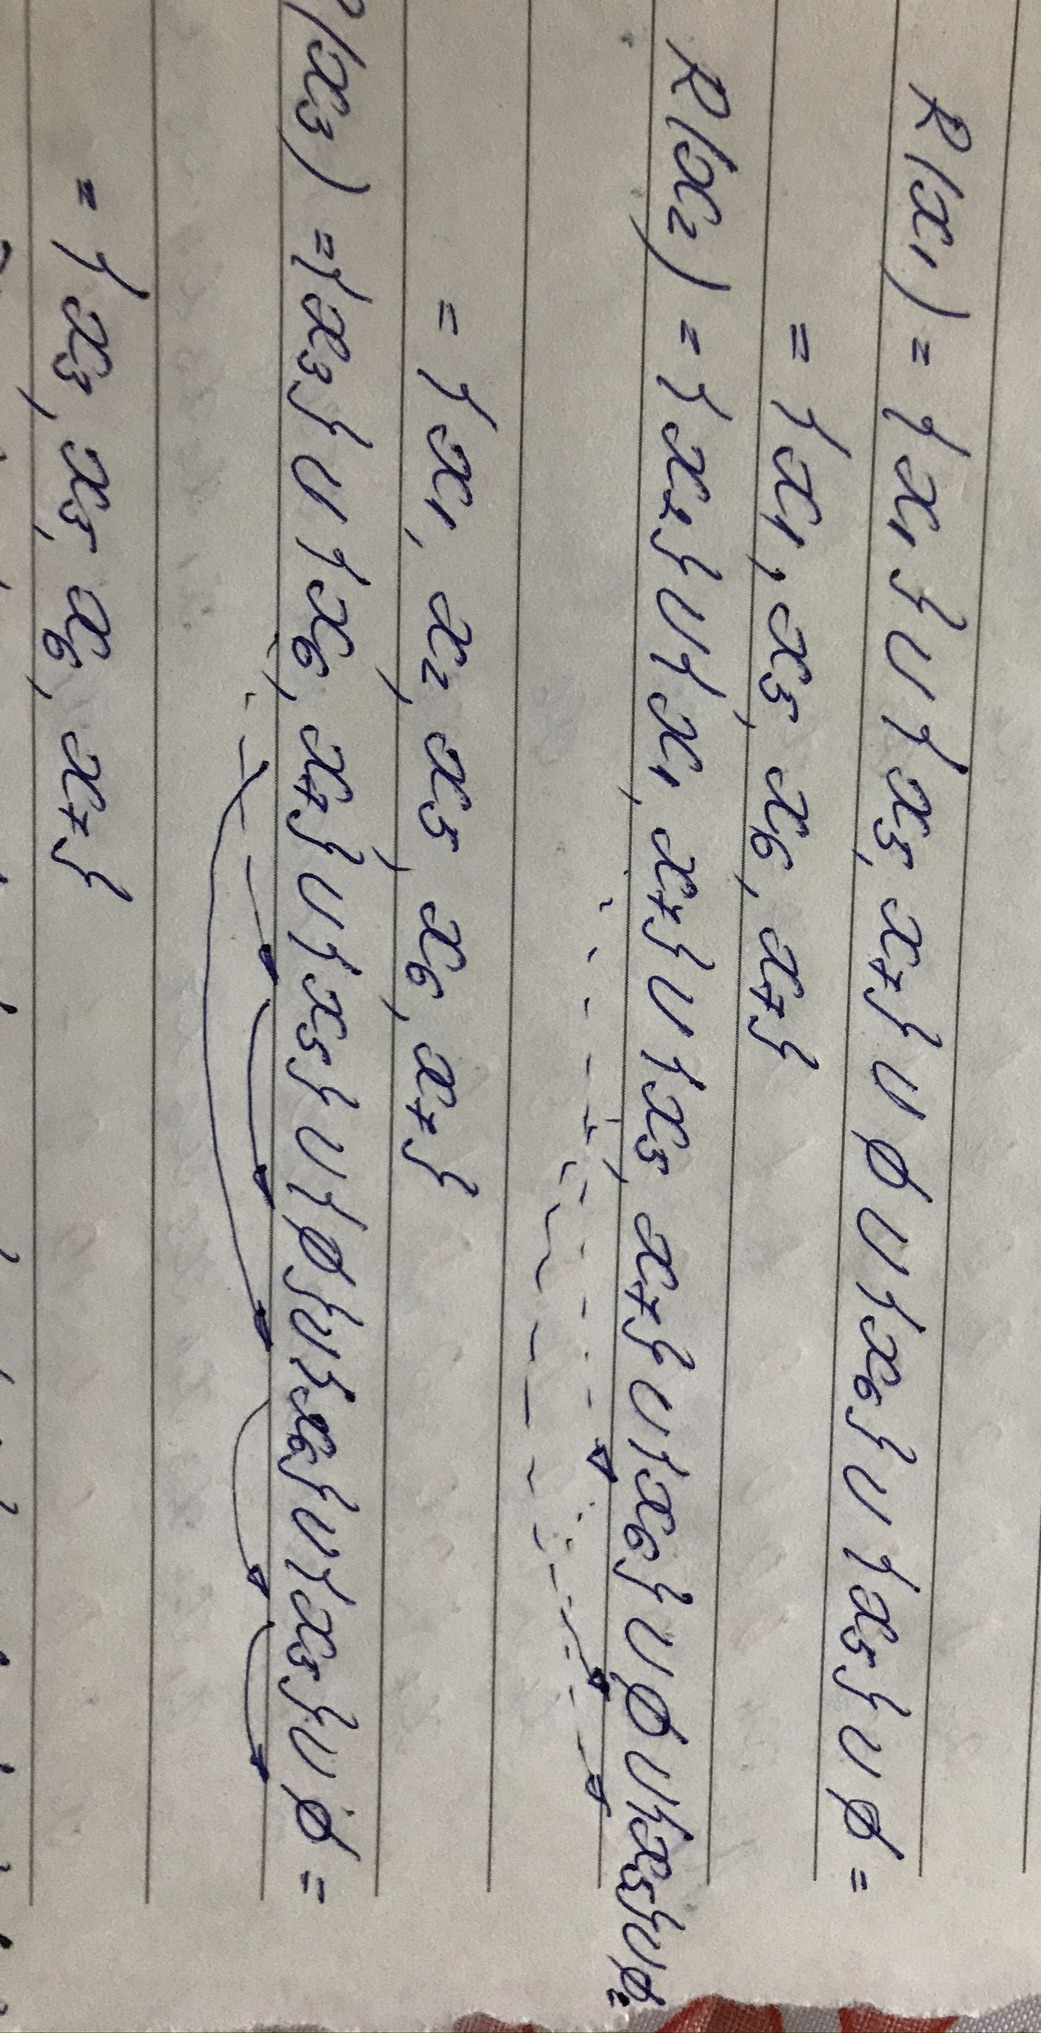 R(x₁) = {x₁} ∪ {x₅, x₇} ∪ ∅ ∪ {x₆} ∪ {x₅} ∪ ∅ =
= {x₁, x₅, x₆, x₇}
R(x₂) = {x₂} ∪ {x₁, x₇} ∪ {x₅, x₇} ∪ {x₆} ∪ ∅ ∪ {x₅} ∪ ∅ =
= {x₁, x₂, x₅, x₆, x₇}
R(x₃) = {x₃} ∪ {x₆, x₇} ∪ {x₅} ∪ {∅} ∪ {x₆} ∪ {x₅} ∪ ∅ =
= {x₃, x₅, x₆, x₇}